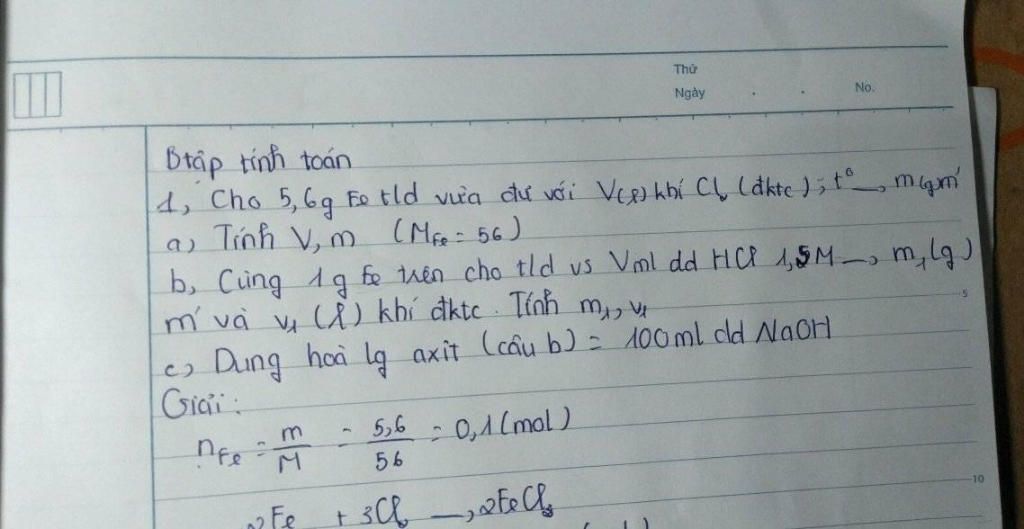 Thứ
Ngày . . No.
Btập tính toán
1, Cho 5,6g Fe tld vừa đủ với V(l) khí Cl₂ (đktc); t° → m(g) m'
a, Tính V, m (MFe = 56)
b, Cùng 1g Fe trên cho tld vs Vml dd HCl 1,5M → m₁(g)
m' và v₁ (l) khí đktc. Tính m₁, v₁
c, Dung hoà lg axit (câu b) = 100ml dd NaOH
5
Giải:
nFe = m/M = 5,6/56 = 0,1 (mol)
10
2Fe + 3Cl₂ → 2FeCl₃